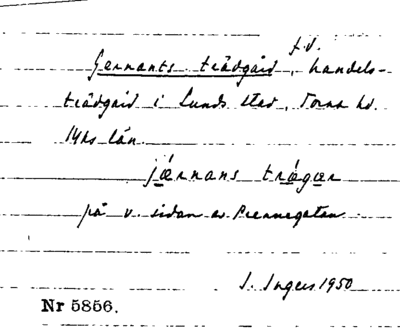 f.d.
Gernants trädgård, handels-
trädgård i Lunds stad, Torna hd.
Mhs län.
jǽrnans trǽgœr
på v. sidan av Prennegatan
I. Ingers 1950
Nr 5856.